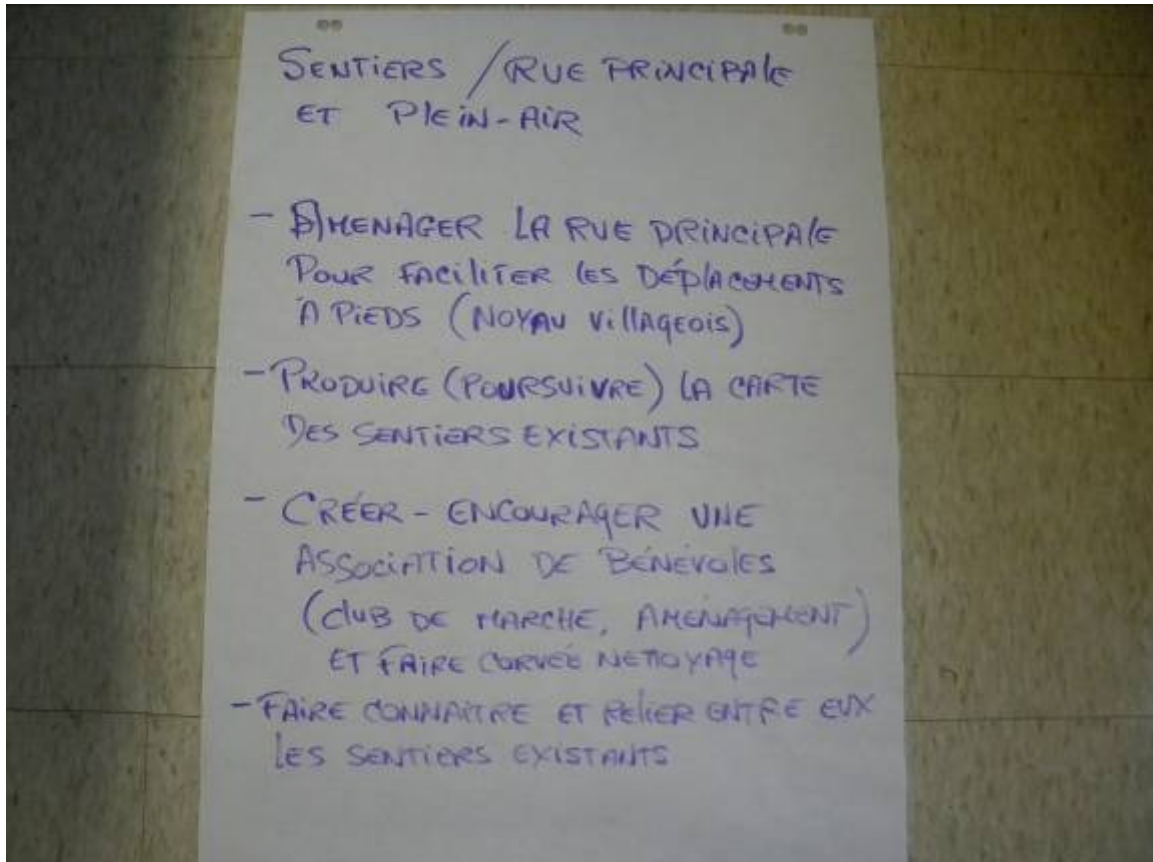 SENTIERS / RUE PRINCIPALE
ET PLEIN-AIR
- AMENAGER LA RUE PRINCIPALE
POUR FACILITER LES DÉPLACEMENTS
À PIEDS (NOYAU VILLAGEOIS)
- PRODUIRE (POURSUIVRE) LA CARTE
DES SENTIERS EXISTANTS
- CRÉER - ENCOURAGER UNE
ASSOCIATION DE BÉNÉVOLES
(CLUB DE MARCHE, AMENAGEMENT)
ET FAIRE CORVÉE NETTOYAGE
- FAIRE CONNAITRE ET RELIER ENTRE EUX
LES SENTIERS EXISTANTS